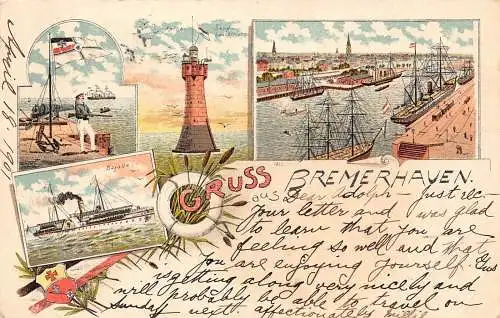 April 18. 1901
GRUSS
aus
BREMERHAVEN.
Dear Adolph – Just rec–
your letter and was glad
to learn that you are
feeling so well and that
you are enjoying yourself. Gus
vegetating along very nicely and
will probably be able to travel on
Sunday next. affectionately